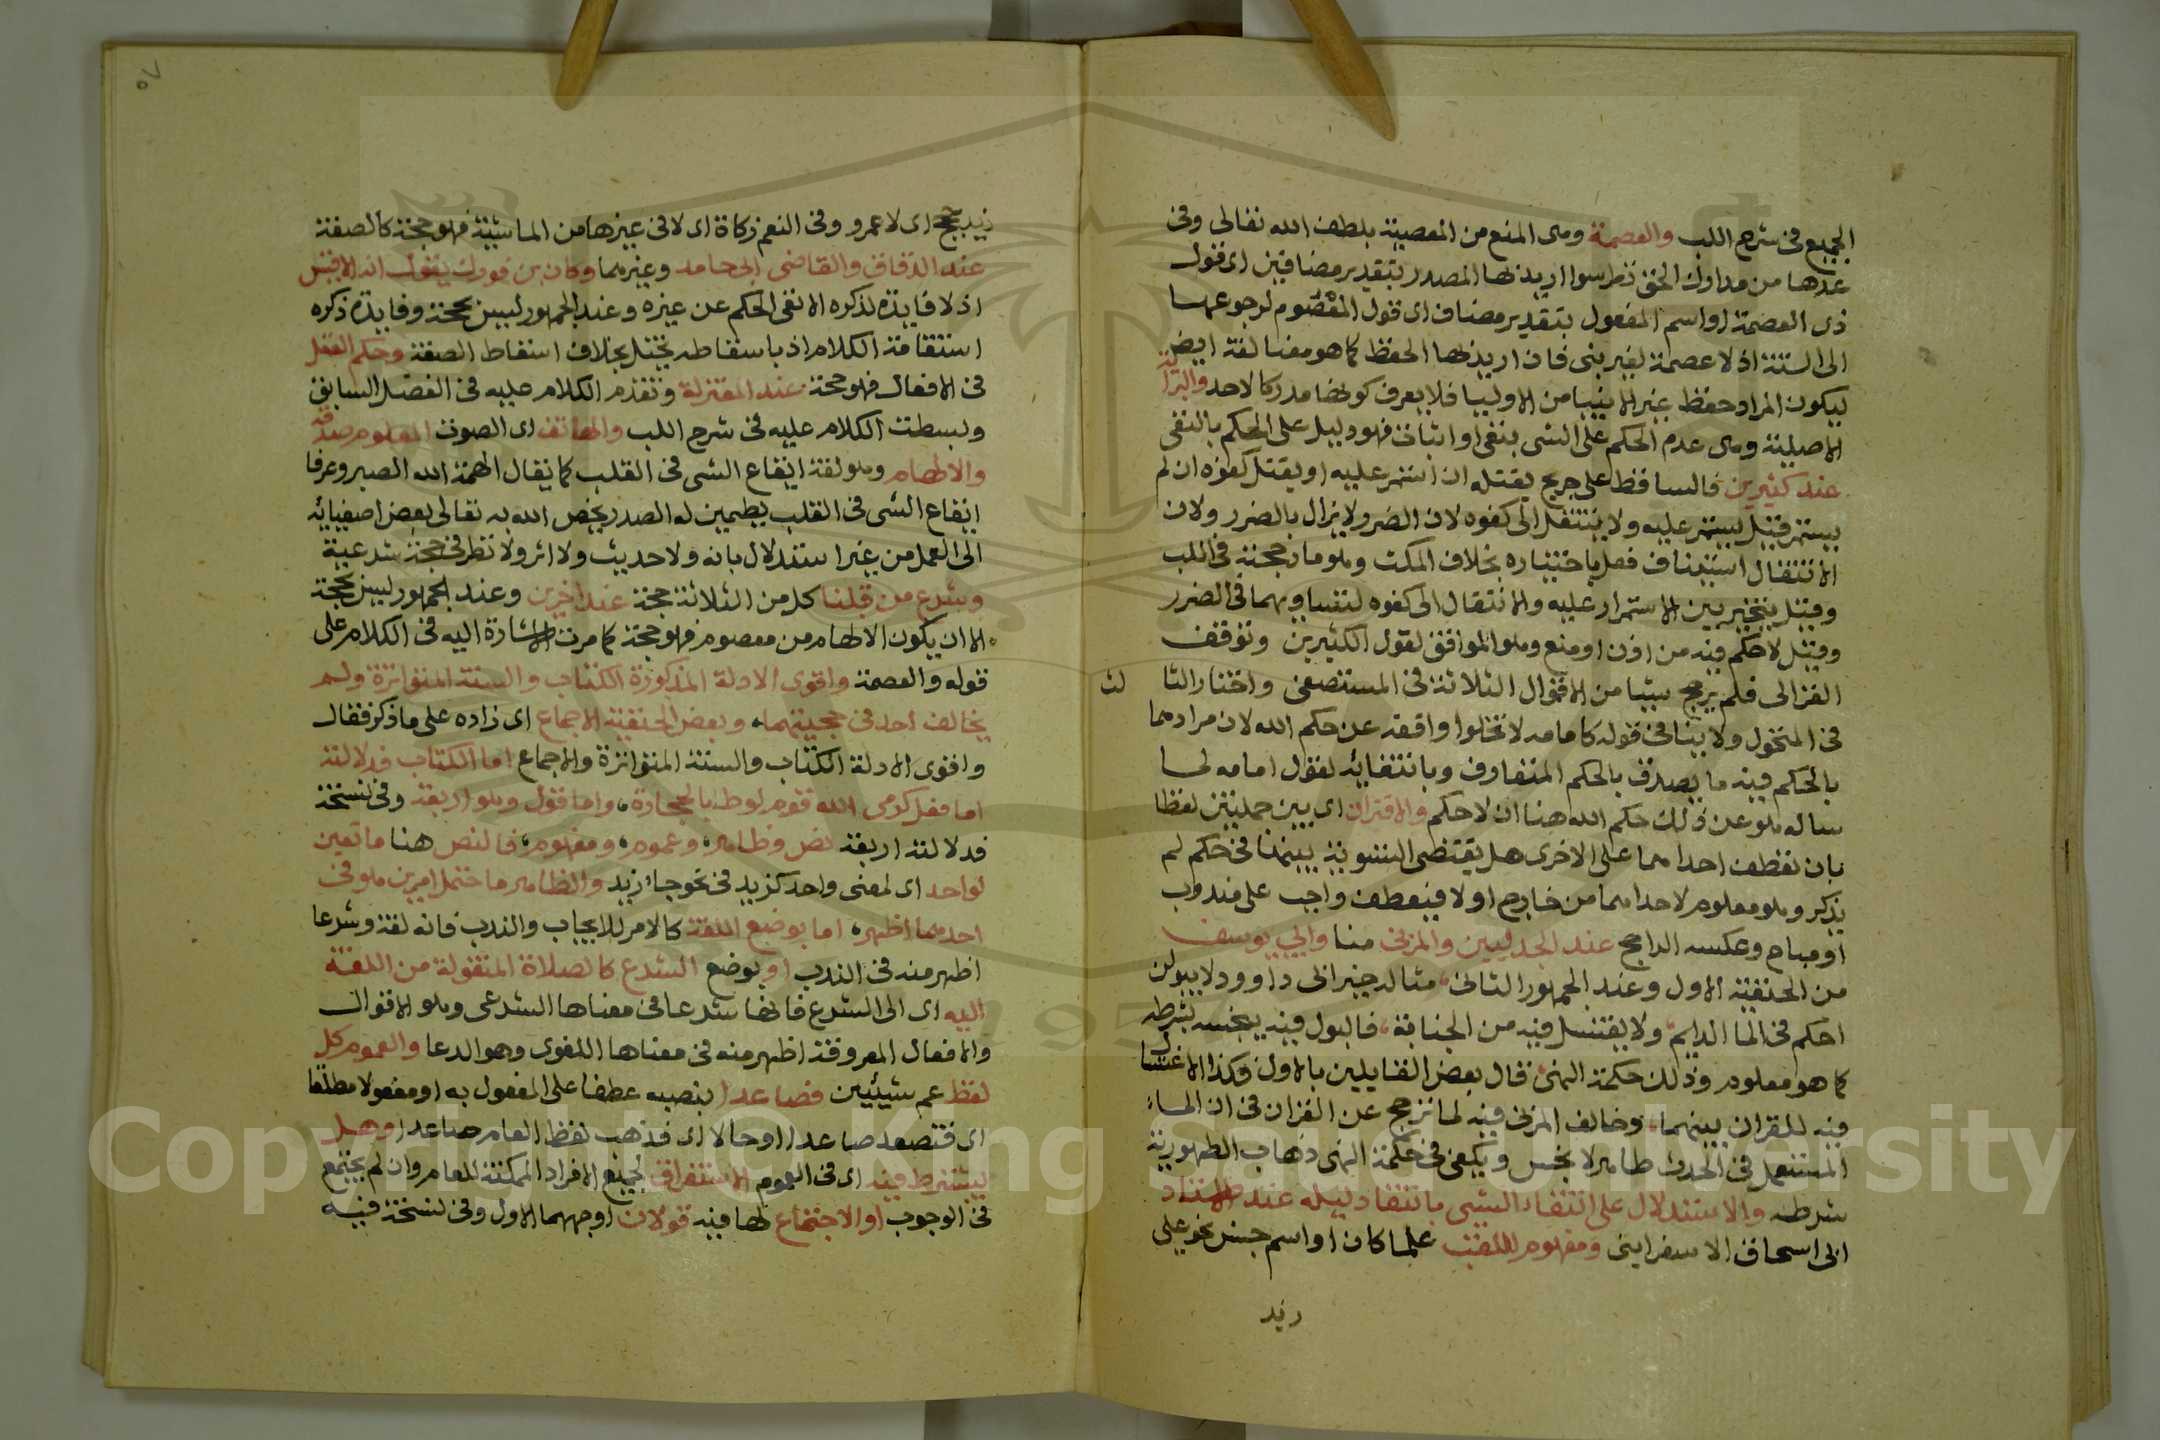 الجميع فى شرح اللب والعصمة وهى المنع من المعصية بلطف الله تعالى وفى
عدها من مدارك الحق نظر سوا اريد بها المصدر بتقدير مضافين اى قول
ذى العصمة او اسم المفعول بتقدير مضاف اى قول المعصوم لرجوعهما
الى السنة اذ لا عصمة لغير نبى فان اريد بها الحفظ كما هو معنا لغة ايض
ليكون المراد حفظ غير الانبيا من الاوليا فلا يعرف كونها مدركا لاحد والبراة
الاصلية وهى عدم الحكم على الشى بنفى او اثبات فهو دليل على الحكم بالنفى
عند كثيرين فالساقط على جريح يقتله ان استمر عليه او يقتل كفوه ان لم
يستمر قيل يستمر عليه ولا ينتقل الى كفوه لان الضرر لا يزال بالضرر ولان
الانتقال استيناف فعل باختياره بخلاف المكث وهو ما رجحته فى اللب
وقيل يتخير بين الاستمرار عليه والانتقال الى كفوه لتساويهما فى الضرر
وقيل لا حكم فيه من اذن او منع وهو الموافق لقول الكثيرين وتوقف
الغزالى فلم يرجح شيئا من الاقوال الثلاثة فى المستصفى واختار الثا
لث
فى المنخول ولا ينافى قوله كامامه لا تخلوا واقعة عن حكم الله لان مرادهما
بالحكم فيه ما يصدق بالحكم المتعارف وبانتفايه لقول امامه لما
ساله هو عن ذلك حكم الله هنا ان لا حكم والاقتران اى بين جملتين لفظا
بان تعطف احداهما على الاخرى هل يقتضى التسوية بينهما فى حكم لم
يذكر وهو معلوم لاحداهما من خارج او لا فيعطف واجب على مندوب
او مباح وعكسه الراجح عند الجدليين والمزنى منا وابى يوسف
من الحنفية الاول وعند الجمهور الثانى، مثاله خبر ابى داوود لا يبولن
احكم فى الما الدايم، ولا يغتسل فيه من الجنابة، فالبول فيه ينجسه بشرطه
كما هو معلوم وذلك حكمة النهى قال بعض القايلين بالاول فكذا الاغتسال
فيه للقران بينهما، وخالف المزنى فيه لما ترجح عن القران فى ان الماء
المستعمل فى الحدث طاهر لا نجس ويكفى فى حكمة النهى ذهاب الطهورية
شرطه والاستدلال على انتفاء الشى بانتفاء دليله عند الاستاد
ابى اسحاق الاسفراينى ومفهوم اللقب علما كان او اسم جنس نحو على
زيد
٥٧
زيد حج اى لا عمرو وفى النعم زكاة اى لا فى غيرها من الماشية فهو حجة كالصفة
عند الدقاق والقاضى ابى حامد وغيرهما وكان بن فورك يقول انه الاقيس
اذ لا فايدة لذكره الا نفى الحكم عن غيره وعند الجمهور ليس بحجة وفايدة ذكره
استقامة الكلام اذ باسقاطه يختل بخلاف اسقاط الصفة وحكم العقل
فى الافعال فهو حجة عند المعتزلة وتقدم الكلام عليه فى الفصل السابق
وبسطت الكلام عليه فى شرح اللب والهاتف اى الصوت المعلوم صدقه
والالهام وهو لغة ايقاع الشى فى القلب كما يقال الهمه الله الصبر وعرفا
ايقاع الشى فى القلب يطمين له الصدر يخص الله به تعالى بعض اصفيايه
الى العمل من غير استدلال باية ولا حديث ولا اثر ولا نظر فى حجة شرعية
وشرع من قبلنا كل من الثلاثة حجة عند اخرين وعند الجمهور ليس بحجة
الا ان يكون الالهام من معصوم فهو حجة كما مرت الاشارة اليه فى الكلام على
قوله والعصمة واقوى الادلة المذكورة الكتاب والسنة المتواترة ولم
يخالف احد فى حجيتهما، وبعض الحنفية الاجماع اى زاده على ما ذكر فقال
واقوى الادلة الكتاب والسنة المتواترة والاجماع اما الكتاب فدلالته
اما فعل كرمى الله قوم لوط بالحجارة، واما قول وهو اربعة وفى نسخة
فدلالته اربعة نص وظاهر، وعموم، ومفهوم، فالنص هنا ما تعين
لواحد اى لمعنى واحد كزيد فى نحو جاء زيد والظاهر ما احتمل امرين هو فى
احدهما اظهر، اما بوضع اللغة كالامر للايجاب والندب فانه لغة وشرعا
اظهر منه فى الندب او بوضع الشرع كالصلاة المنقولة من اللغة
اليه اى الى الشرع فانها شرعا فى معناها الشرعى وهو الاقوال
والافعال المعروفة اظهر منه فى معناها اللغوى وهو الدعا والعموم كل
لفظ عم شيئين فصاعدا بنصبه عطفا على المفعول به او مفعولا مطلقا
اى فتصعد صاعدا او حالا اى فذهب لفظ العام صاعدا وهل
يشترط فيه اى فى العموم الاستغراق لجميع الافراد الممكنة للعام وان لم يجتمع
فى الوجوب او الاجتماع لها فيه قولان اوجههما الاول وفى نسخة فيه
Copyright © King Saud University